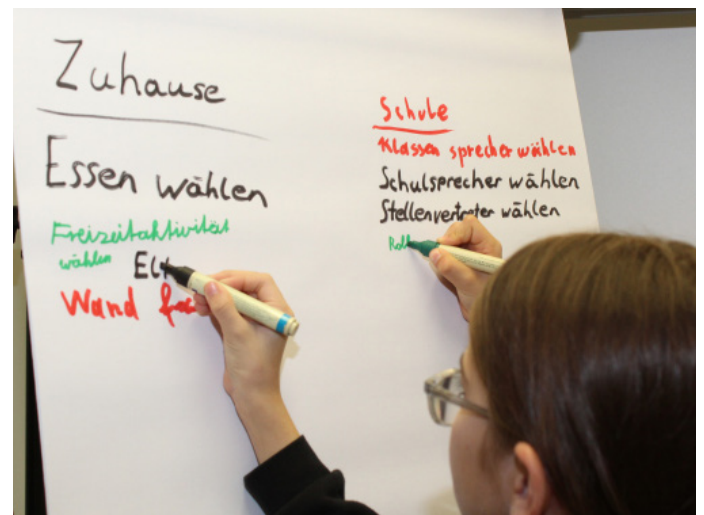 Zuhause
Essen wählen
Freizeitaktivität
wählen
Wand
Schule
Klassen sprecher wählen
Schulsprecher wählen
Stellenvertreter wählen